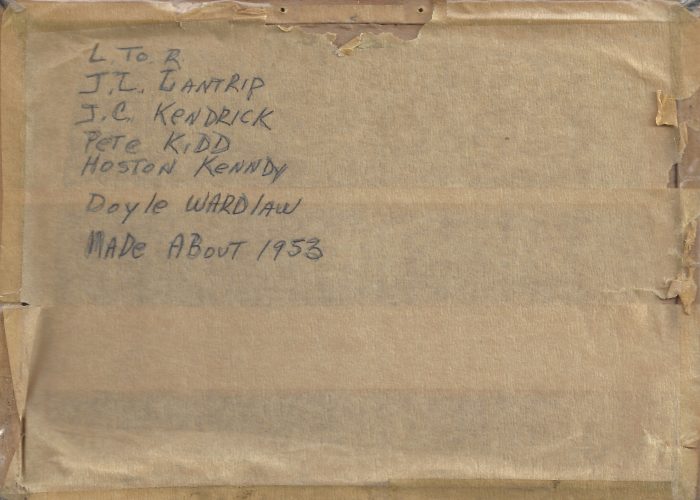 L. To R
J.L. LANTRIP
J.C. KENDRICK
PeTe KIDD
HOSTON KENNDY
Doyle WARDlAW
MADe ABOUT 1953